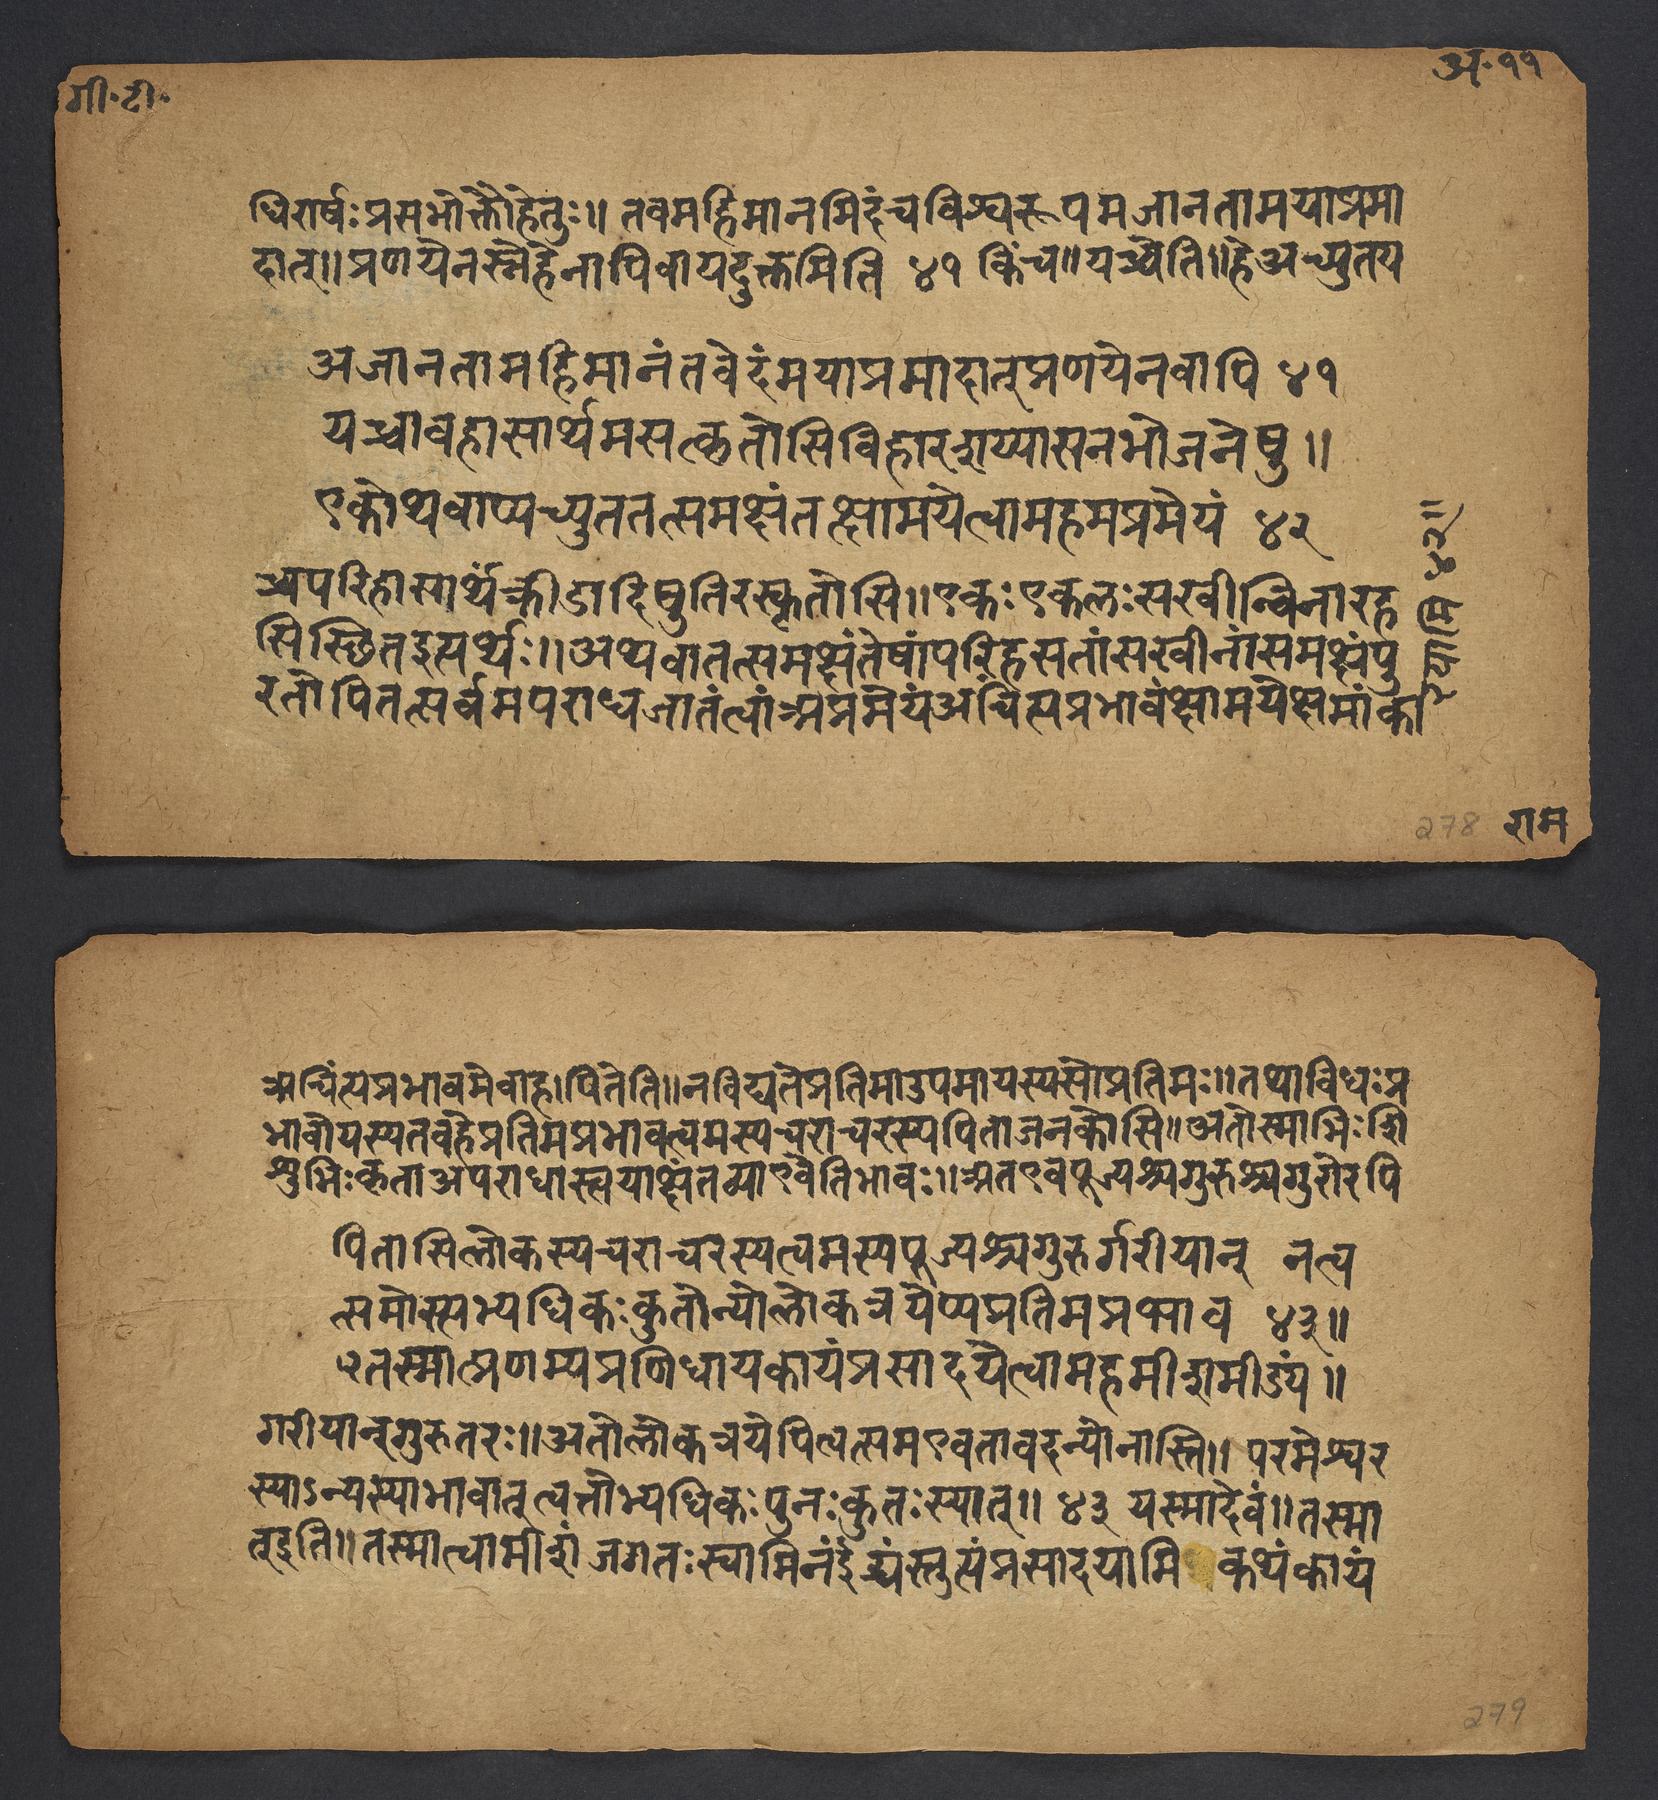 गी॰टी॰
अ॰११
धिरार्षः प्रसभोक्तौहेतुः॥ तवमहिमानमिदंचविश्वरूपमजानतामयाप्रमा
दात्॥प्रणयेनस्नेहेनापिवायदुक्तमिति ४१ किंच॥यच्चेति॥हेअच्युतय
अजानतामहिमानंतवेदंमयाप्रमादात्प्रणयेनवापि ४१
यच्चावहासार्थमसत्कृतोसिविहारशय्यासनभोजनेषु॥
एकोथवाप्यच्युततत्समक्षंतत्क्षामयेत्वामहमप्रमेयं ४२
च्चपरिहासार्थंक्रीडादिषुतिरस्कृतोसि॥एकःएकलःसखीन्विनारह
सिस्थितइत्यर्थः॥अथवातत्समक्षंतेषांपरिहसतांसखीनांसमक्षंपु
रतोपितत्सर्वमपराधजातंत्वांअप्रमेयंअचिंत्यप्रभावंक्षामयेक्षमांका
रयामि४२॥
278
राम
अचिंत्यप्रभावमेवाह।पितेति॥नविद्यतेप्रतिमाउपमायस्यसोप्रतिमः॥तथाविधःप्र
भावोयस्यतवहेप्रतिमप्रभावत्वमस्यचराचरस्यपिताजनकोसि॥अतोस्माभिःशि
शुभिःकृताअपराधास्त्वयाक्षंतव्याएवेतिभावः॥अतएवपूज्यश्चगुरुश्चगुरोरपि
पितासिलोकस्यचराचरस्यत्वमस्यपूज्यश्चगुरुर्गरीयान् नत्व
त्समोस्त्यभ्यधिकःकुतोन्योलोकत्रयेप्यप्रतिमप्रभाव ४३॥
तस्मात्प्रणम्यप्रणिधायकायंप्रसादयेत्वामहमीशमीड्यं॥
गरीयान्गुरुतरः॥अतोलोकत्रयेपित्वत्समएवतावदन्योनास्ति॥ परमेश्वर
स्याऽन्यस्याभावात्त्वत्तोभ्यधिकःपुनःकुतःस्यात्॥ ४३ यस्मादेवं॥तस्मा
त्इति॥तस्मात्वामीशं जगतःस्वामिनंईड्यंस्तुत्यंप्रसादयामि कथंकायं
279